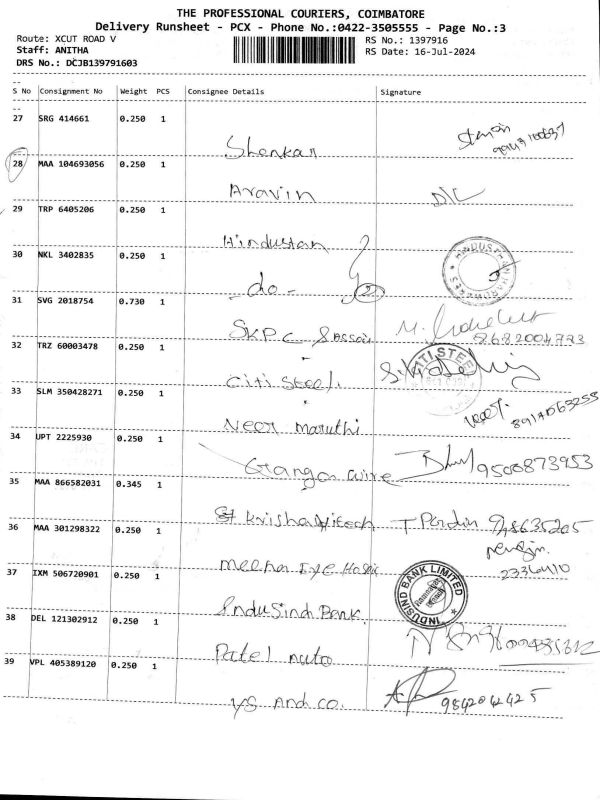 THE PROFESSIONAL COURIERS, COIMBATORE
Delivery Runsheet - PCX - Phone No.:0422-3505555 - Page No.:3
Route: XCUT ROAD V
RS No.: 1397916
Staff: ANITHA
RS Date: 16-Jul-2024
DRS No.: DCJB139791603
S No Consignment No Weight PCS Consignee Details Signature
27 SRG 414661 0.250 1
Shankar
28 MAA 104693056 0.250 1
Aravin
29 TRP 6405206 0.250 1
Hindustan
30 NKL 3402835 0.250 1
-do- 2
31 SVG 2018754 0.730 1
SKPC
32 TRZ 60003478 0.250 1
Citi Steel
CITI STEEL
33 SLM 350428271 0.250 1
Neer maruthi
34 UPT 2225930 0.250 1
Ganga 9500873953
35 MAA 866582031 0.345 1
36 MAA 301298322 0.250 1
Meena Eye
2336410
37 IXM 506720901 0.250 1
IndusInd Bank
INDUSIND BANK LIMITED
38 DEL 121302912 0.250 1
Patel Auto
39 VPL 405389120 0.250 1
YS And Co.
9842042425